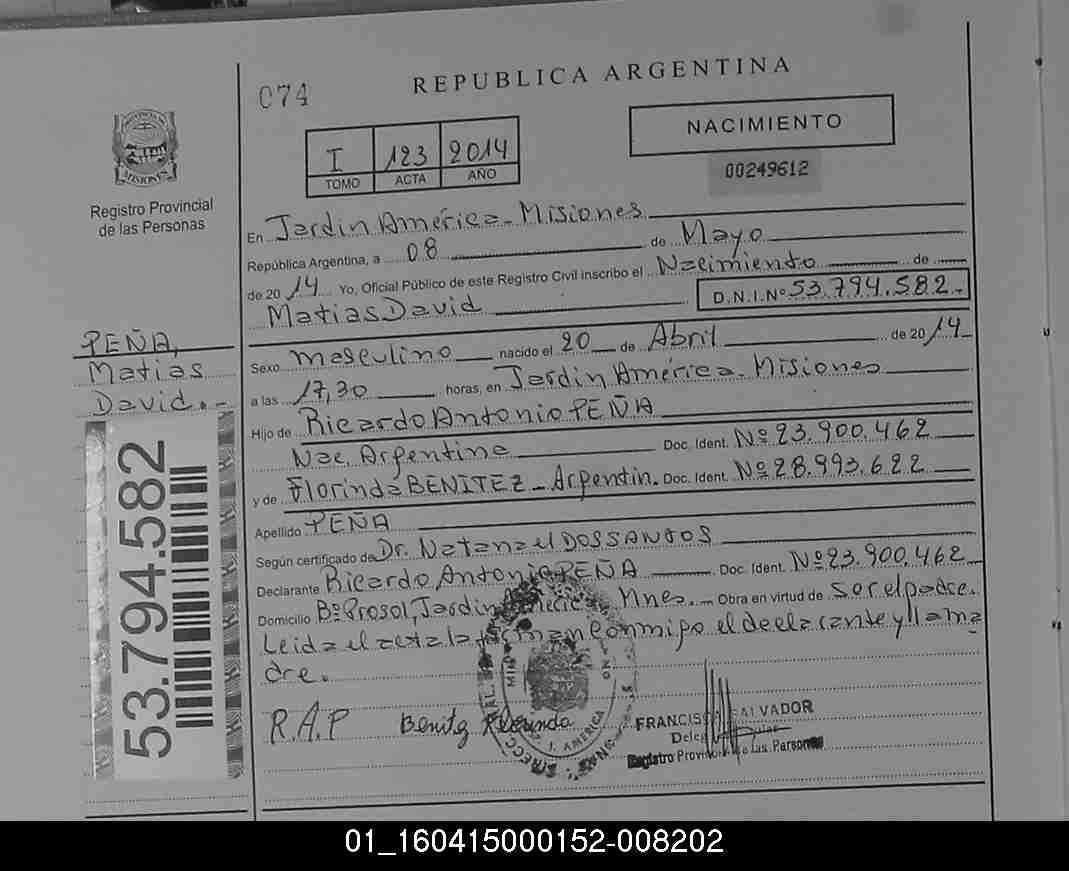 074
REPUBLICA ARGENTINA
PROVINCIA DE
MISIONES
Registro Provincial
de las Personas
I 123 2014
TOMO ACTA AÑO
NACIMIENTO
00249612
En Jardin América - Misiones
República Argentina, a 08 de Mayo
de 2014 Yo, Oficial Público de este Registro Civil inscribo el Nacimiento de
Matias David D.N.I.Nº 53.794.582.-
PEÑA,
Matias
David.-
53.794.582
Sexo masculino nacido el 20 de Abril de 2014
a las 17,30 horas, en Jardin América - Misiones
Hijo de Ricardo Antonio PEÑA
Nac. Argentina Doc. Ident. Nº 23.900.462
y de Florinda BENITEZ - Argentin. Doc. Ident. Nº 28.993.622
Apellido PEÑA
Según certificado de Dr. Natanael DOSSANTOS
Declarante Ricardo Antonio PEÑA Doc. Ident. Nº 23.900.462
Domicilio Bº Prosol, Jardin América Mnes.- Obra en virtud de ser el padre.
Leida el acta la firman conmigo el declarante y la ma
dre.
R.A.P Benitez
J. AMERICA
FRANCISCO SALVADOR
Registro Provincial de las Personas
01_160415000152-008202